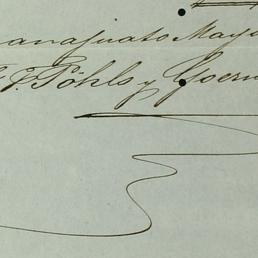 anajuato Mayo
F. Pöhls y Goern